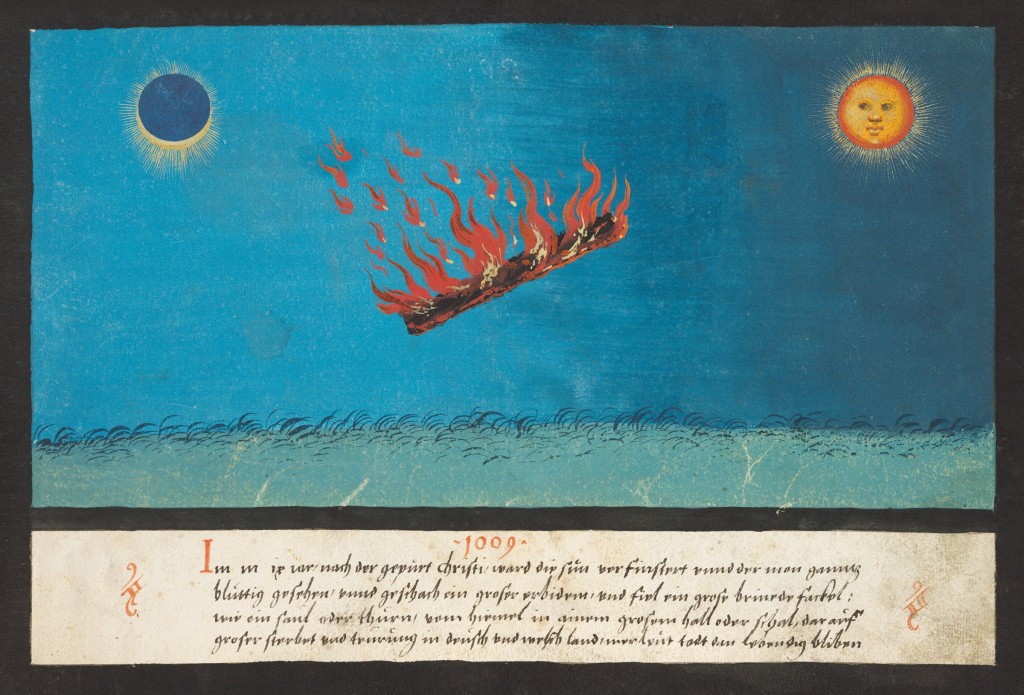 ·1009·
Im m ix iar, nach der gepurt Christi, ward die sun verfinstert vnnd der mon ganntz
bluttig gesehen, vnnd geschach ein groser erbidem, vnd fiel ein grose brinede fackel,
wie ein saul oder thurn, vom hiemel in ainem grosem hall oder schal, dar auff
groser sterbet vnd teurung in deusch vnd welsch land, mer leut todt dan lebendig bliben